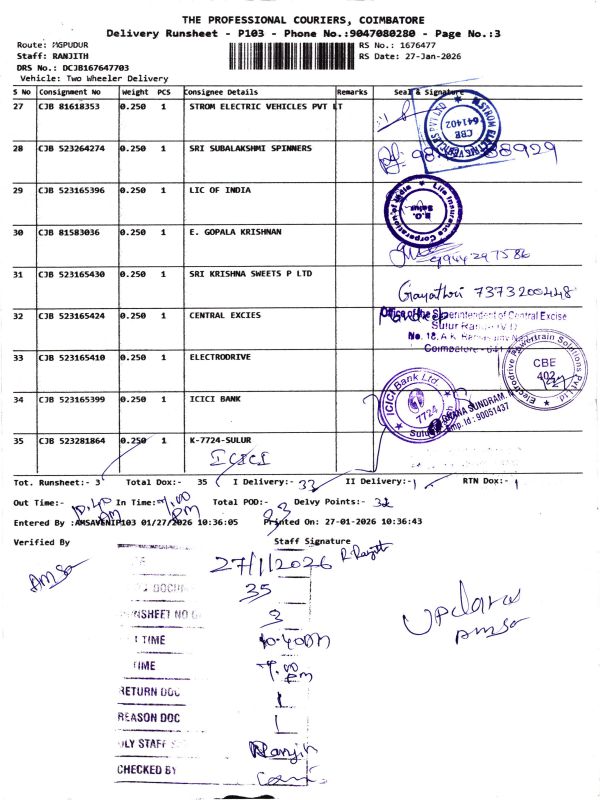 THE PROFESSIONAL COURIERS, COIMBATORE
Delivery Runsheet - P103 - Phone No.:9047080280 - Page No.:3
Route: MGPUDUR
RS No.: 1676477
Staff: RANJITH
RS Date: 27-Jan-2026
DRS No.: DCJB167647703
Vehicle: Two Wheeler Delivery
S No Consignment No Weight PCS Consignee Details Remarks Seal & Signature
27 CJB 81618353 0.250 1 STROM ELECTRIC VEHICLES PVT LT
STROM ELECTRIC VEHICLES PVT LTD CBE 641402
28 CJB 523264274 0.250 1 SRI SUBALAKSHMI SPINNERS
29 CJB 523165396 0.250 1 LIC OF INDIA
Life Insurance Corporation of India B.O. Sulur
30 CJB 81583036 0.250 1 E. GOPALA KRISHNAN
9944297586
31 CJB 523165430 0.250 1 SRI KRISHNA SWEETS P LTD
Gayathri 7373200448
32 CJB 523165424 0.250 1 CENTRAL EXCIES
Office of the Superintendent of Central Excise
Sulur
No. 18, A.K.
Coimbatore - 641
33 CJB 523165410 0.250 1 ELECTRODRIVE
Electrodrive Powertrain Solutions Pvt Ltd CBE 402
34 CJB 523165399 0.250 1 ICICI BANK
ICICI Bank Ltd. 7724 Sulur
SUNDRAM.
Emp. Id : 90051437
35 CJB 523281864 0.250 1 K-7724-SULUR
ICICI
Tot. Runsheet:- 3 Total Dox:- 35 I Delivery:- 33 II Delivery:- 1 RTN Dox:- 1
Out Time:- 10.40 AM In Time:- 7.00 PM Total POD:- 33 Delvy Points:- 32
Entered By :AMSAVENIP103 01/27/2026 10:36:05 Printed On: 27-01-2026 10:36:43
Verified By Staff Signature
Amsa
R. Ranjith
27/1/2026
35
RUNSHEET NO 3
TIME 10.40 AM
TIME 7.00 PM
RETURN DOC 1
REASON DOC 1
DLY STAFF Ranjith
CHECKED BY
Amsa